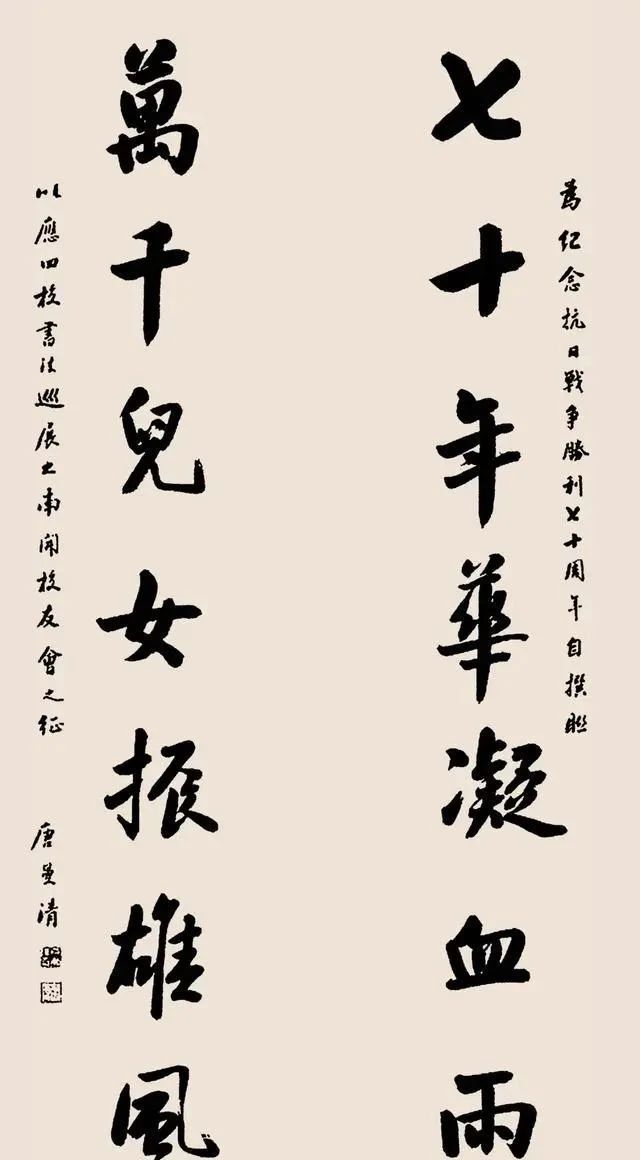 為纪念抗日戰争勝利七十周年自撰聯
七十年華凝血雨
萬千兒女振雄風
以應四校書法巡展之南開校友會之征
唐曼清